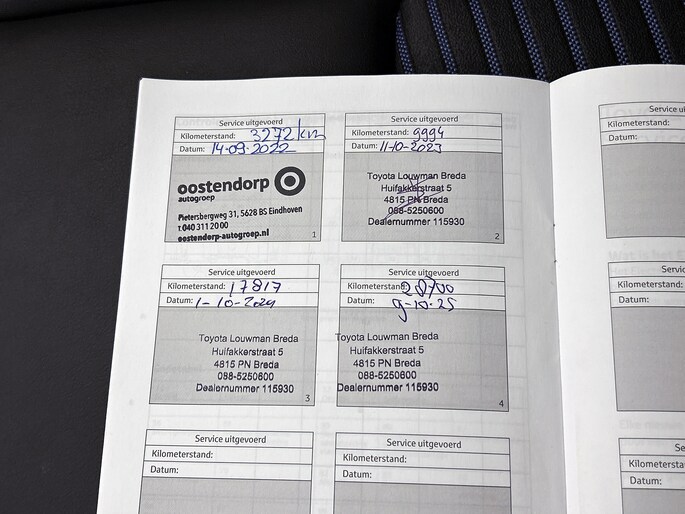 Service uitgevoerd
Kilometerstand: 3272 km
Datum: 14-09-2022
oostendorp
autogroep
Pietersbergweg 31, 5628 BS Eindhoven
t.040 311 20 00
oostendorp-autogroep.nl
1
Service uitgevoerd
Kilometerstand: 9994
Datum: 11-10-2023
Toyota Louwman Breda
Huifakkerstraat 5
4815 PN Breda
088-5250600
Dealernummer 115930
2
Service uitgevoerd
Kilometerstand: 17817
Datum: 1-10-2024
Toyota Louwman Breda
Huifakkerstraat 5
4815 PN Breda
088-5250600
Dealernummer 115930
3
Service uitgevoerd
Kilometerstand:
Datum: 9-10-25
Toyota Louwman Breda
Huifakkerstraat 5
4815 PN Breda
088-5250600
Dealernummer 115930
4
Service uitgevoerd
Kilometerstand:
Datum:
Service uitgevoerd
Kilometerstand:
Datum:
Service
Kilometerstand:
Datum:
Kilometerstand:
Datum:
Datum: